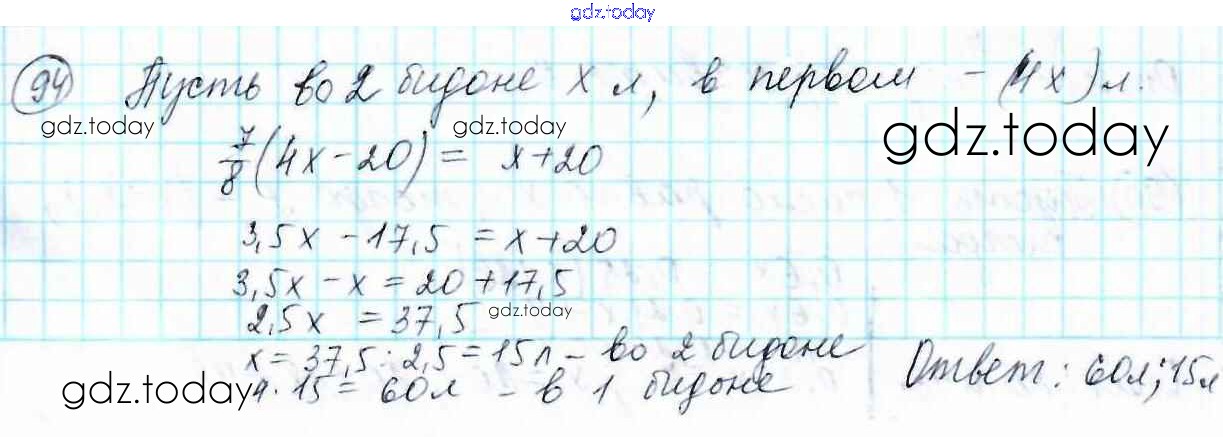 gdz.today
94 Пусть во 2 бидоне х л, в первом – (4х) л.
gdz.today gdz.today gdz.today
7/8 (4х – 20) = х + 20
3,5х – 17,5 = х + 20
3,5х – х = 20 + 17,5
2,5х = 37,5 gdz.today
х = 37,5 : 2,5 = 15 л – во 2 бидоне
gdz.today 4 · 15 = 60 л – в 1 бидоне Ответ: 60 л; 15 л